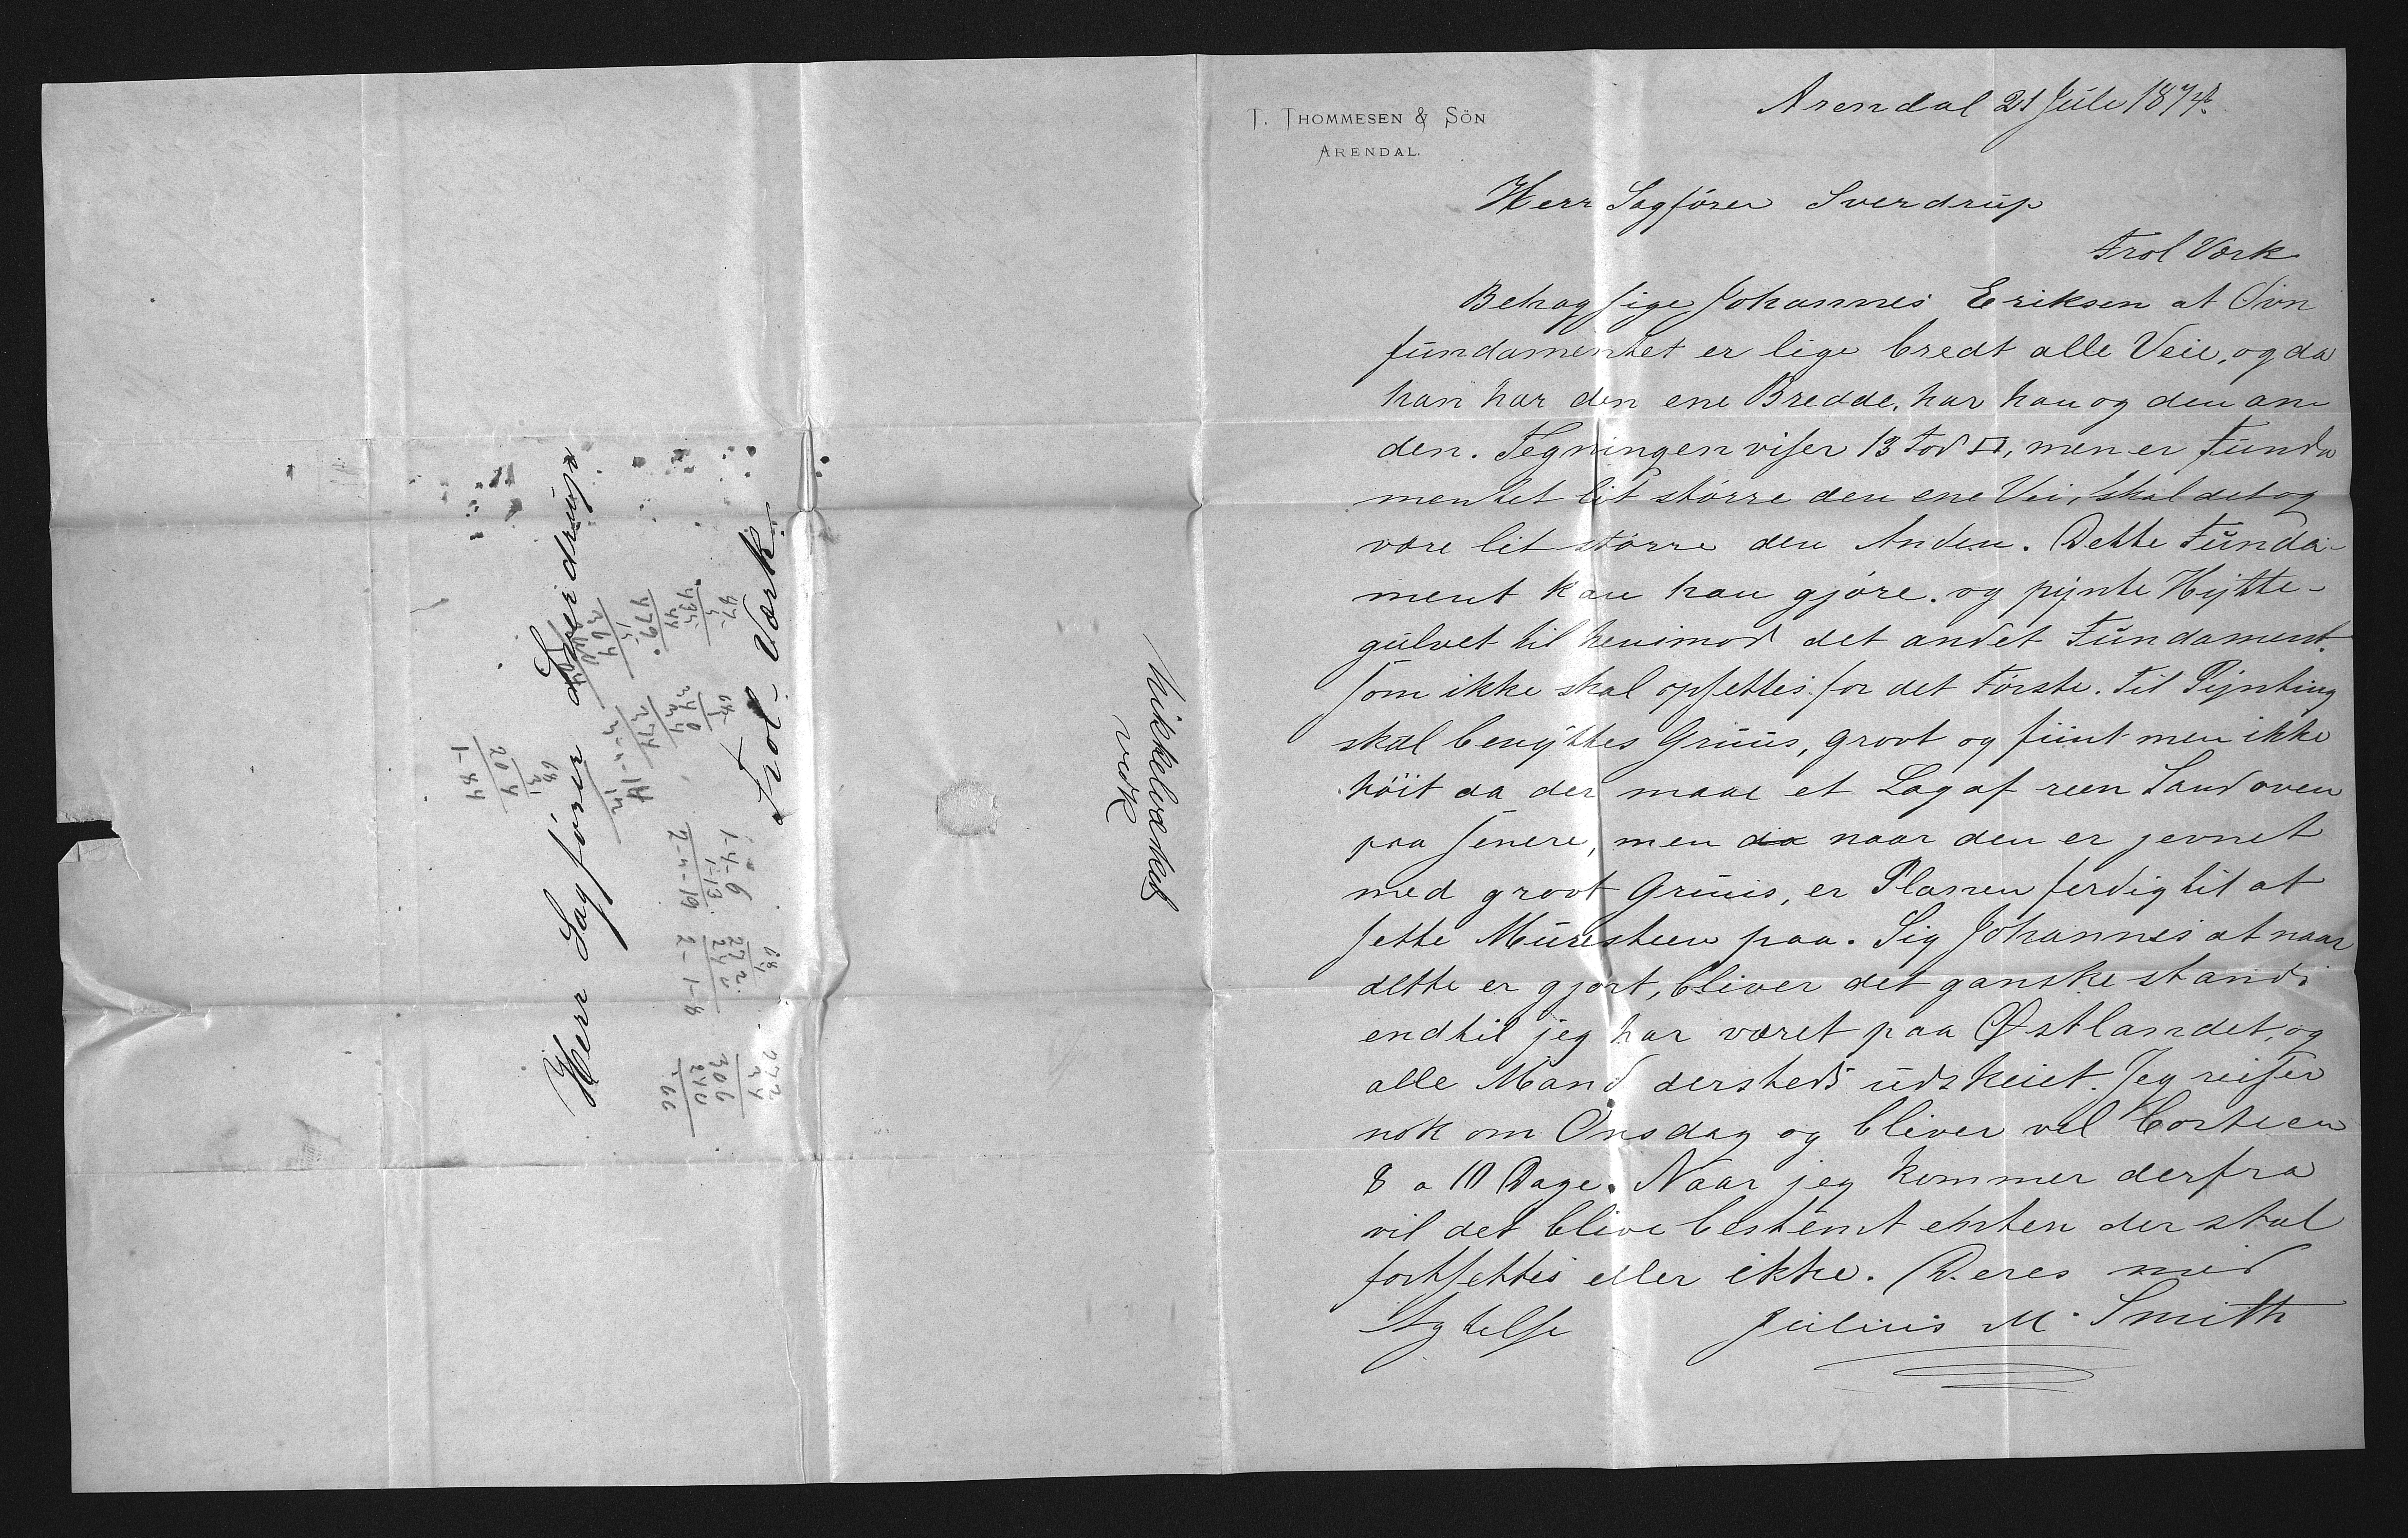 T. THOMMESEN & SÖN
ARENDAL.
Arendal 21 Juli 1874.
Herr Sagförer Sverdrup
Frol Værk
Behag sige Johannes Eriksen at Ovn
fundamentet er lige bredt alle Veie, og da
han har den ene Bredde, har han og den an
den. Tegningen viser 13 Fod □, men er Funda
mentet lit större den ene Vei, skal det og
være lit större den Anden. Dette Funda-
ment kan han gjöre. og pynte Hytte-
gulvet til henimod det andet Fundament.
som ikke skal opsettes for det Förste. Til Pynting
skal benyttes Gruus, groot og fiint men ikke
höit da der maae et Lag af reen Sand oven
paa senere, men da naar den er jevnet
med groot Gruus, er Planen ferdig til at
sette Muresteen paa. Sig Johannes at naar
dette er gjort, bliver det ganske stands
endtil jeg har været paa Østlandet, og
alle Mand dersteds udskeiet. Jeg reiser
nok om Onsdag og bliver vel borte en
8 a 10 Dage. Naar jeg kommer derfra
vil det blive bestemt enten der skal
fortsettes eller ikke. Deres med
Agtelse Julius M. Smith
Nikkelverket
vedk
Herr Sagförer Sverdrup
Frol-Værk.
47-
435
44
479.
15
264
68
240
24
274
1-4-6
1-13
2-4-19
68
272
240
2-1-8
272
34
306
240
66
68
204
1-84